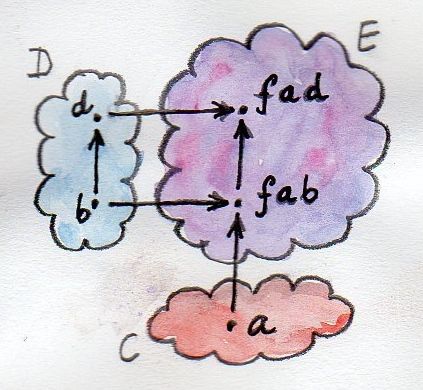 D
E
d
fad
b
fab
C
a